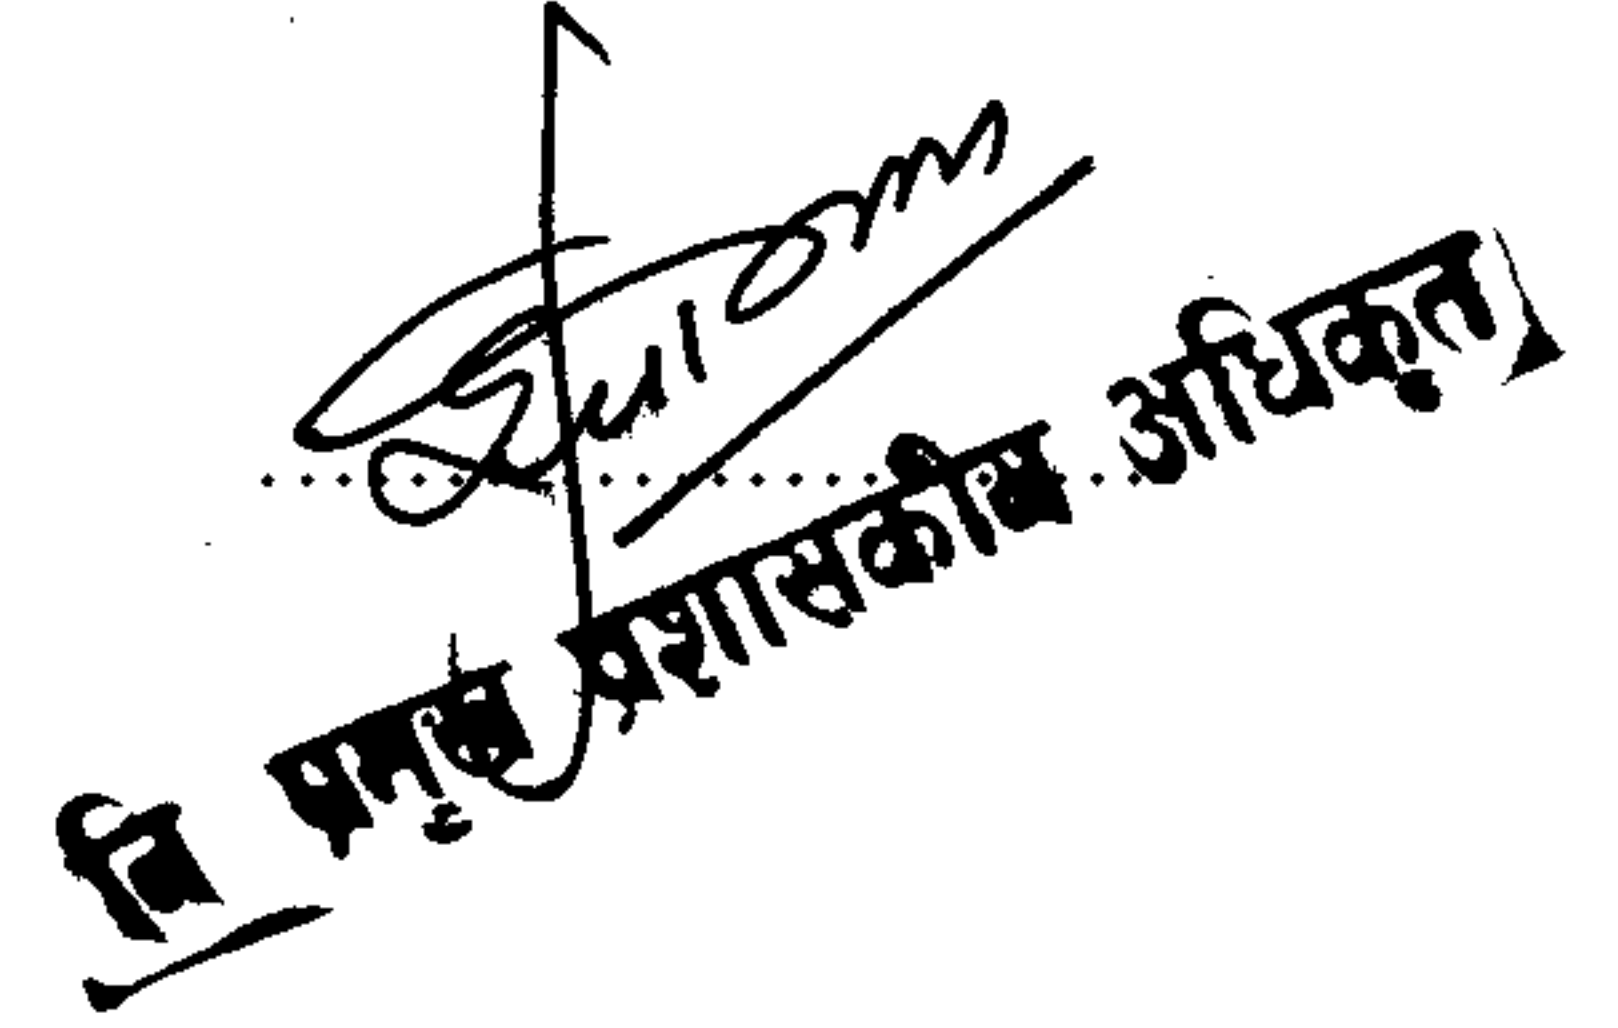 नि प्रमुख प्रशासकीय अधिकृत